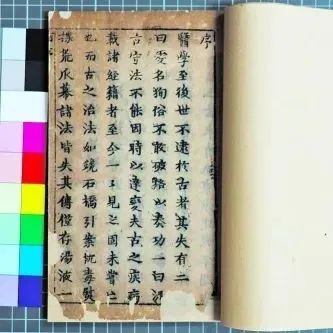 序
醫學至後世不逮於古者其失有二
曰愛名狥俗不敢破格以奏功一曰泥
古守法不能因時以達變夫古之疾病
載諸經籍者至今一一見之固未嘗亡
也而古之治法如鑱石撟引案扤毒熨
揲荒爪幕諸法皆失其傳僅存湯液一